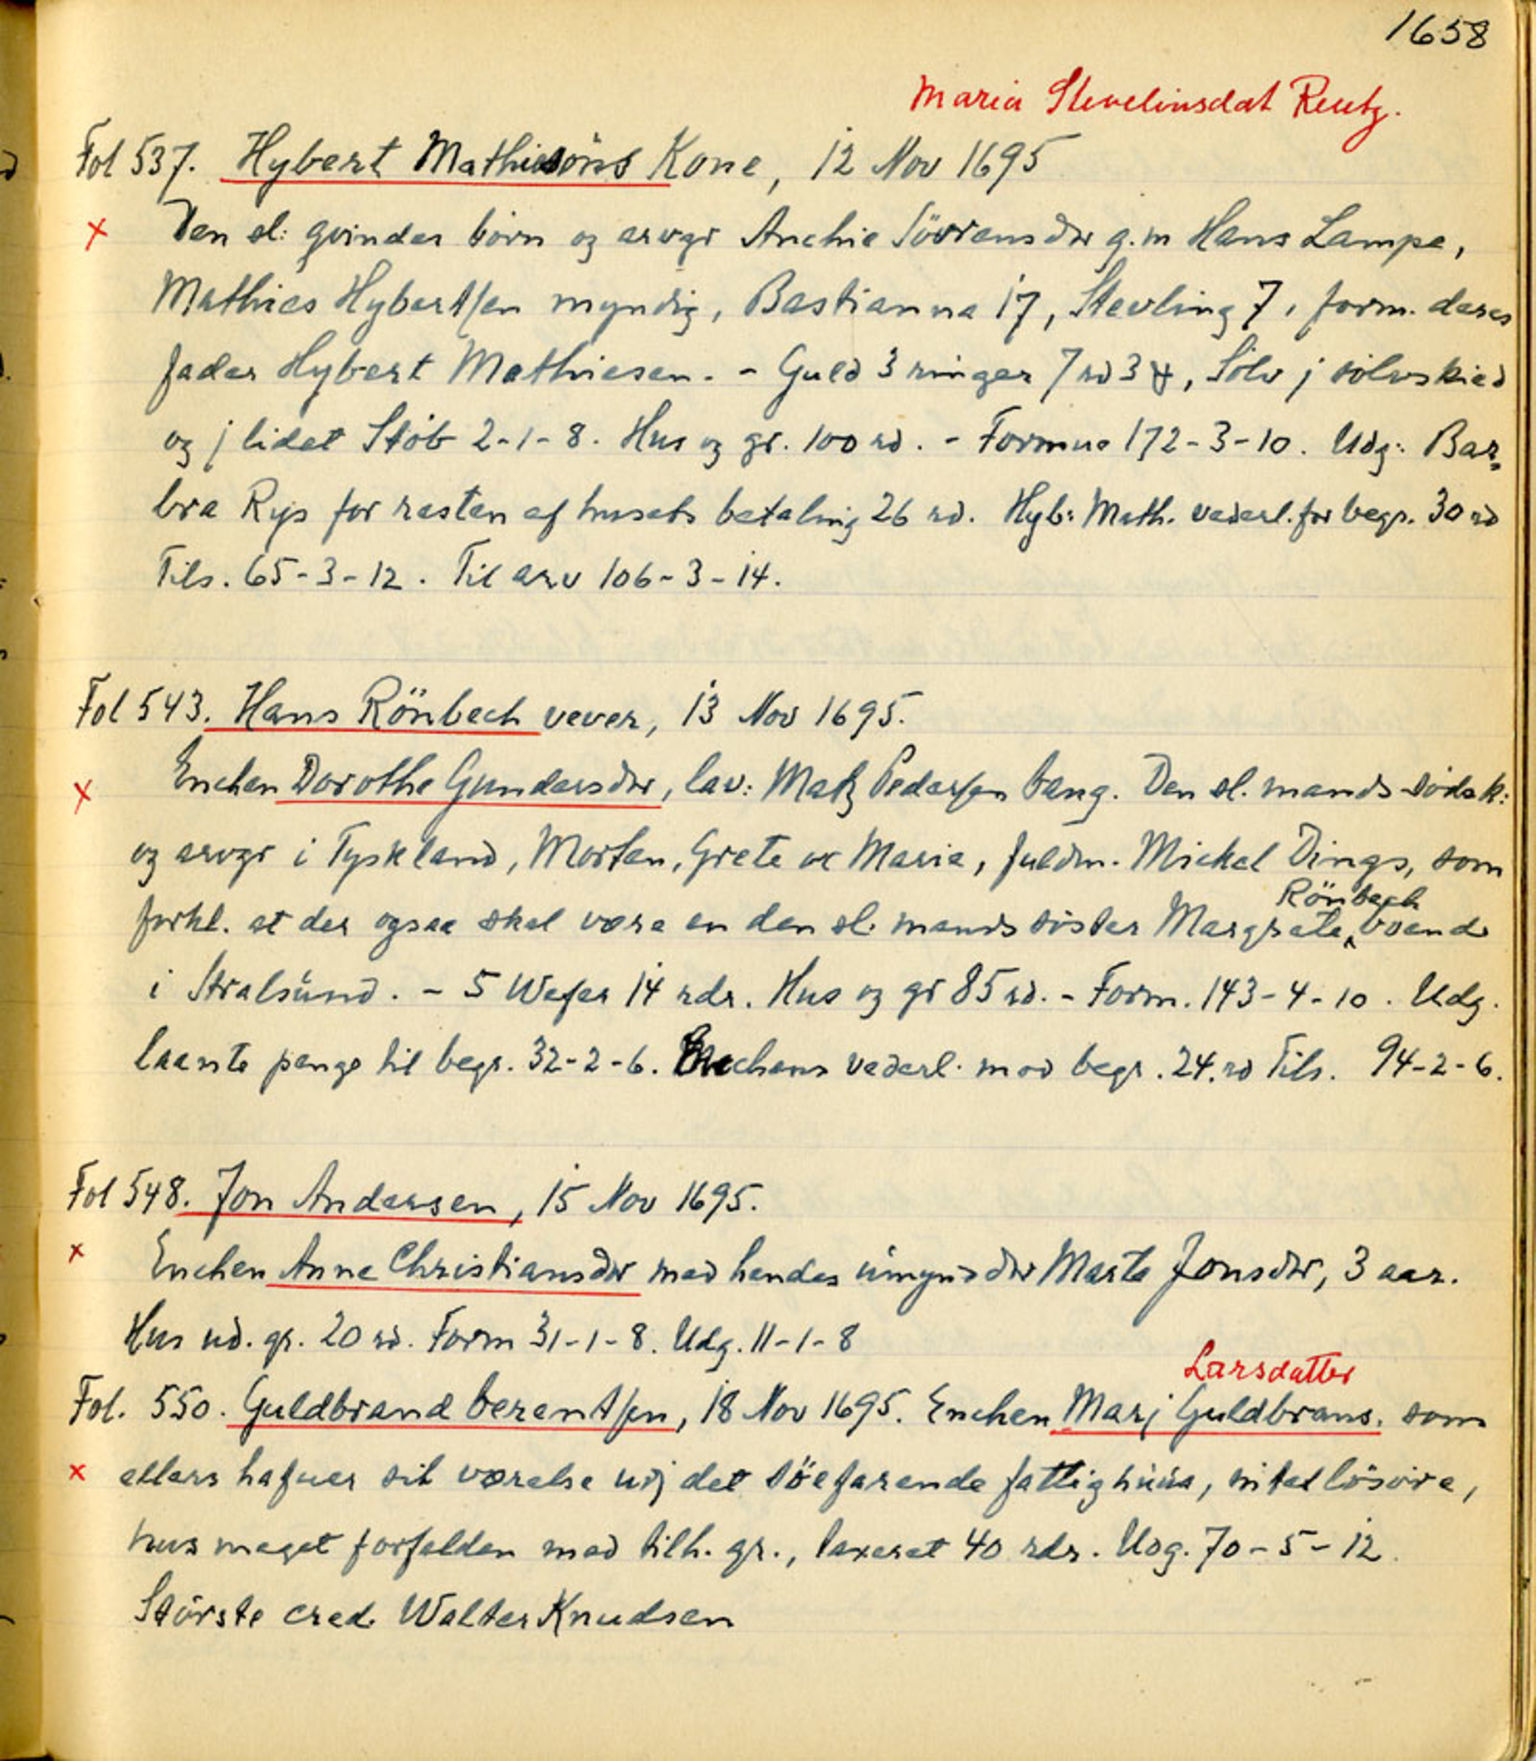 1658
Maria Stevelinsdat Reutz.
Fol 537. Hybert Mathiesöns Kone, 12 Nov 1695
Den sl: qvindes börn og arvgr Anchie Sövrensdtr g.m Hans Lampe,
Mathies Hybertsen myndig, Bastianna 17, Stevling 7, form. deres
fader Hybert Mathiesen. - Guld 3 ringer 7 rd 3 ß, Sölv j sölvskied
og j lidet Stöb 2-1-8. Hus og gr. 100 rd. - Formue 172-3-10. Udg: Bar-
bra Rys for resten af husets betaling 26 rd. Hyb: Math. vederl. for begr. 30 rd
Tils. 65-3-12. Til arv 106-3-14.
Fol 543. Hans Rönbech vever, 13 Nov 1695.
Enchen Dorothe Gundersdtr, lav: Matz Pedersen bang. Den sl. mands södsk:
og arvgr i Tyskland, Morten, Grete oc Marie, fuldm. Mickel Dings, som
Rönbech
forkl. at der ogsaa skal være en den sl. mands söster Margrete, boende
i Stralsünd. - 5 Wefer 14 rdr. Hus og gr 85 rd. - Form. 143-4-10. Udg.
laante penge til begr. 32-2-6. Enchens vederl. mod begr. 24 rd Tils. 94-2-6.
Fol 548. Jon Andersen, 15 Nov 1695.
Enchen Anne Christiansdtr med hendes ümynd dtr Marte Jonsdtr, 3 aar.
Hus ud. gr. 20 rd. Form 31-1-8. Udg. 11-1-8
Larsdatter
Fol. 550. Guldbrand berentsen, 18 Nov 1695. Enchen Marj Guldbrans. som
ellers hafuer sit værelse udj det söefarende fattighüüs, intet lösöre,
hus meget forfalden med tilh. gr., taxeret 40 rdr. Udg. 70-5-12.
Störste cred. Walter Knudsen